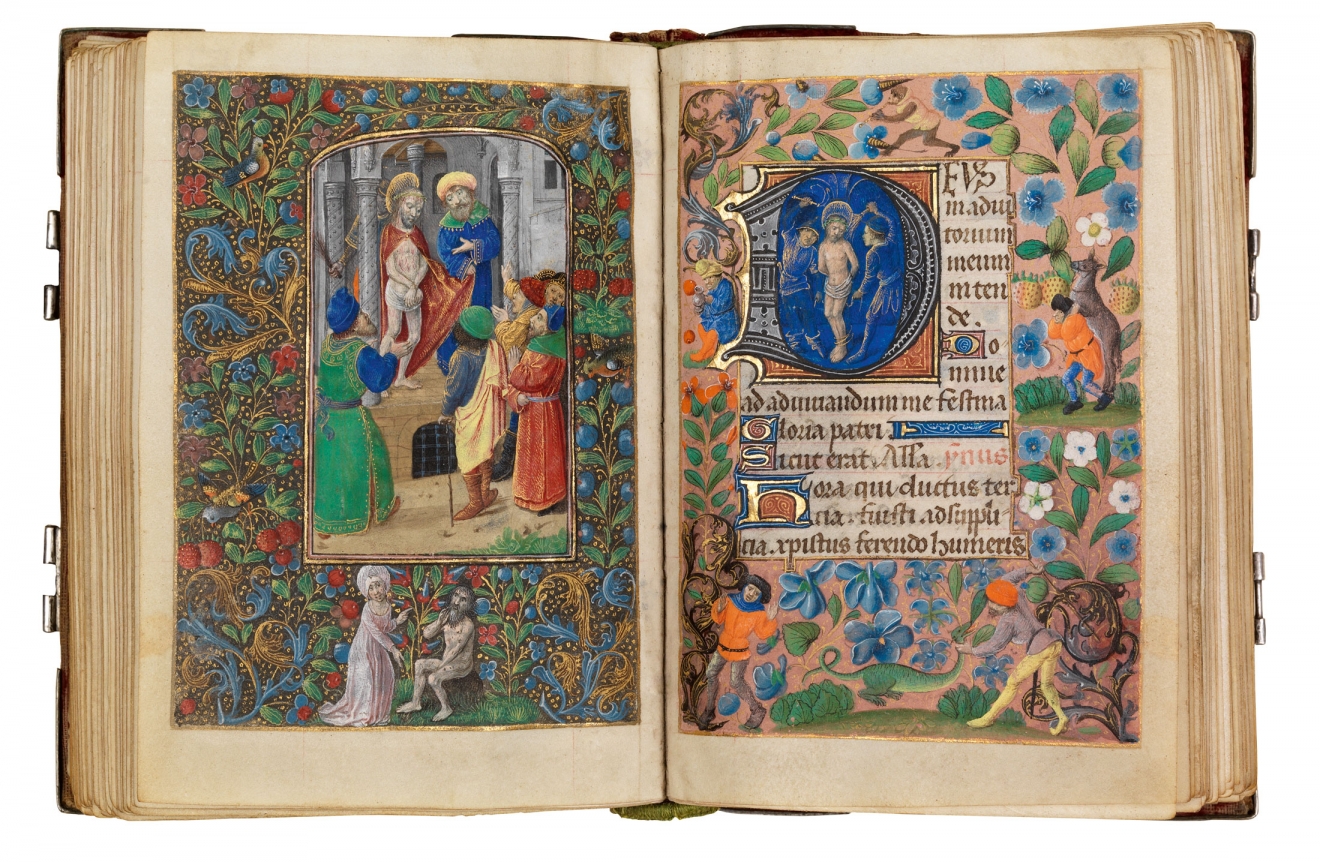 DEVS
in adiui
torium
meum
inten
de. Do
mine
ad adiuuandum me festina
Gloria patri.
Sicut erat. Alla. ymus
Hora qui ductus ter
cia. fuisti ad suppli
cia. xpistus ferendo humeris